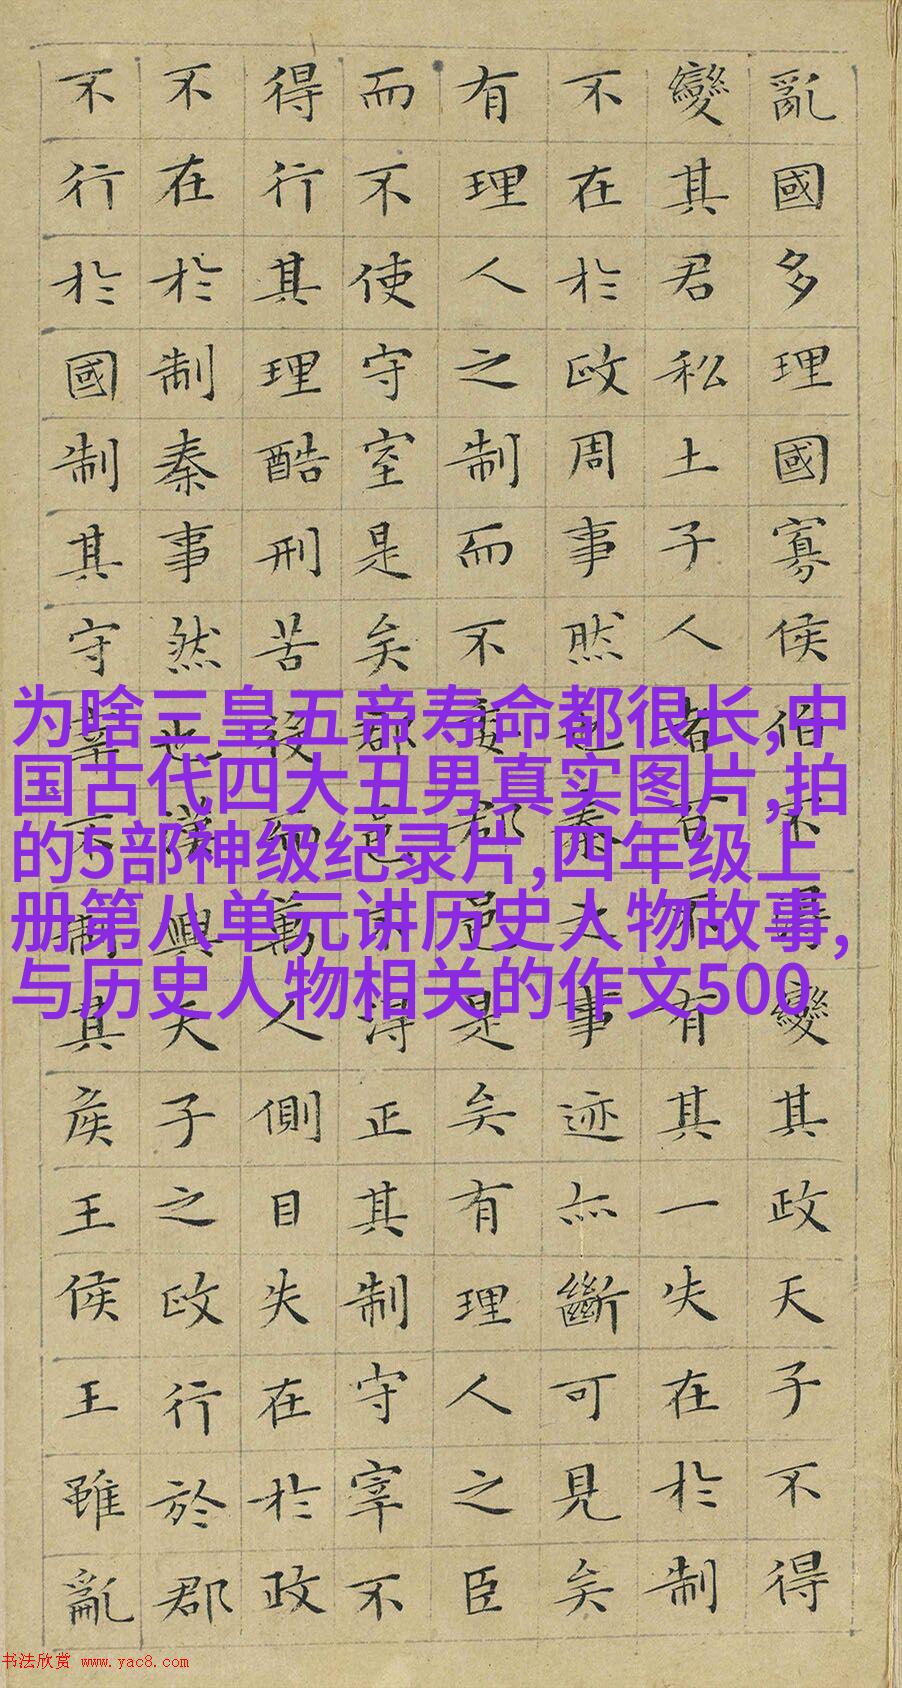 亂國多理國寡侯伯不得變其政天子不得
變其君私土子人者百不有其一失在於制
不在於政周事然也秦之事迹亦斷可見矣
有理人之制而不委郡邑是矣有理人之臣
而不使守宰是矣郡邑不得正其制守宰不
得行其理酷刑苦役而萬人側目失在於政
不在於制秦事然也漢興天子之政行於郡
不行於國制其守宰不制其侯王侯王雖亂
为啥三皇五帝寿命都很长,中
国古代四大丑男真实图片,拍
的5部神级纪录片,四年级上
册第八单元讲历史人物故事,
与历史人物相关的作文500
书法欣赏 www.yac8.com